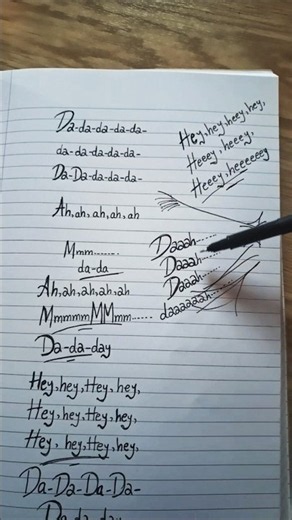 Da-da-da-da-da-
da-da-da-da-da-
Da-Da-da-da-da-
Ah,ah,ah,ah,ah
Mmm.......
da-da
Ah,ah,ah,ah,ah
MmmmmMMmm......
Da-da-day
Hey,hey,Hey,hey,
Hey,hey,Hey,hey,
Hey, hey,Hey,hey,
Da-Da-Da-Da-
Da-da-da
Hey,hey,heey,hey,
Heeey,heeey,
Heeey,heeeeeey
Daaah......
Daaah......
Daaah......
daaaaaah......